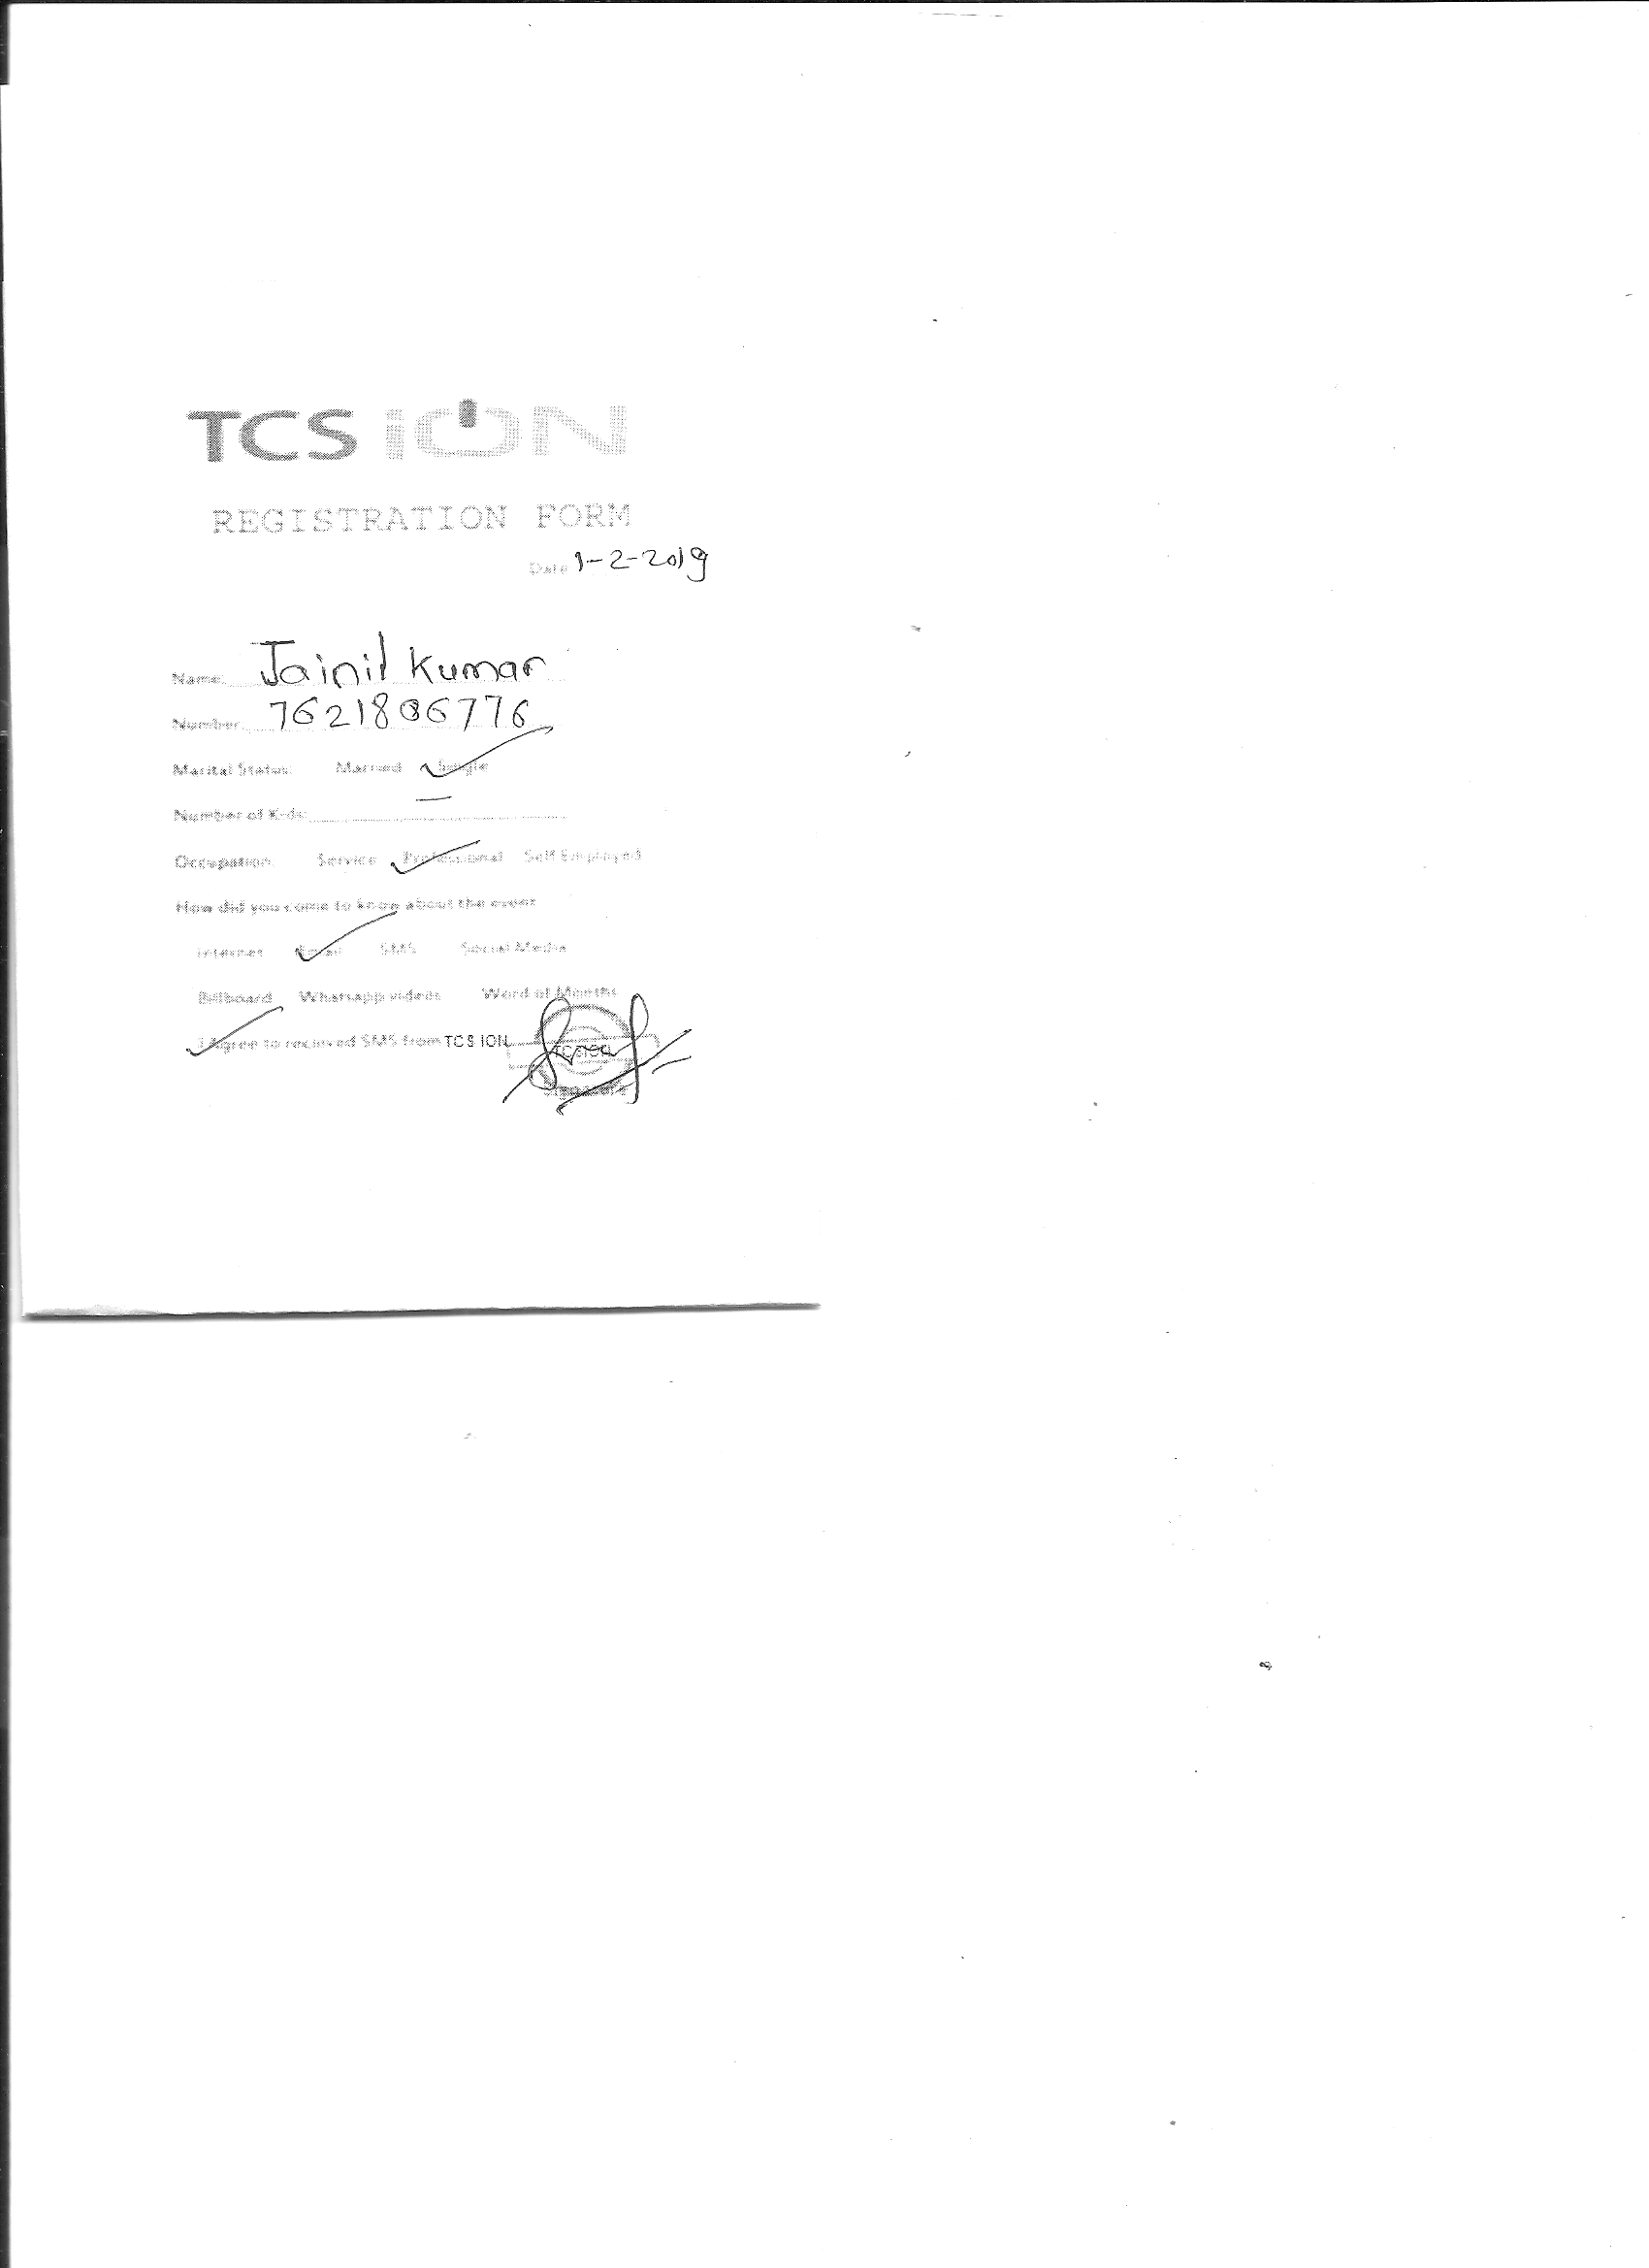 TCS iON
REGISTRATION FORM
Date 1-2-2019
Name: Jainil Kumar
Number: 7621806776
Marital Status: Married Single
Number of Kids:
Occupation: Service Professional Self Employed
How did you come to know about the event
Internet Email SMS Social Media
Billboard Whatsapp videos Word of Months
I Agree to recieved SMS from TCS ION
TCS ION
Signature